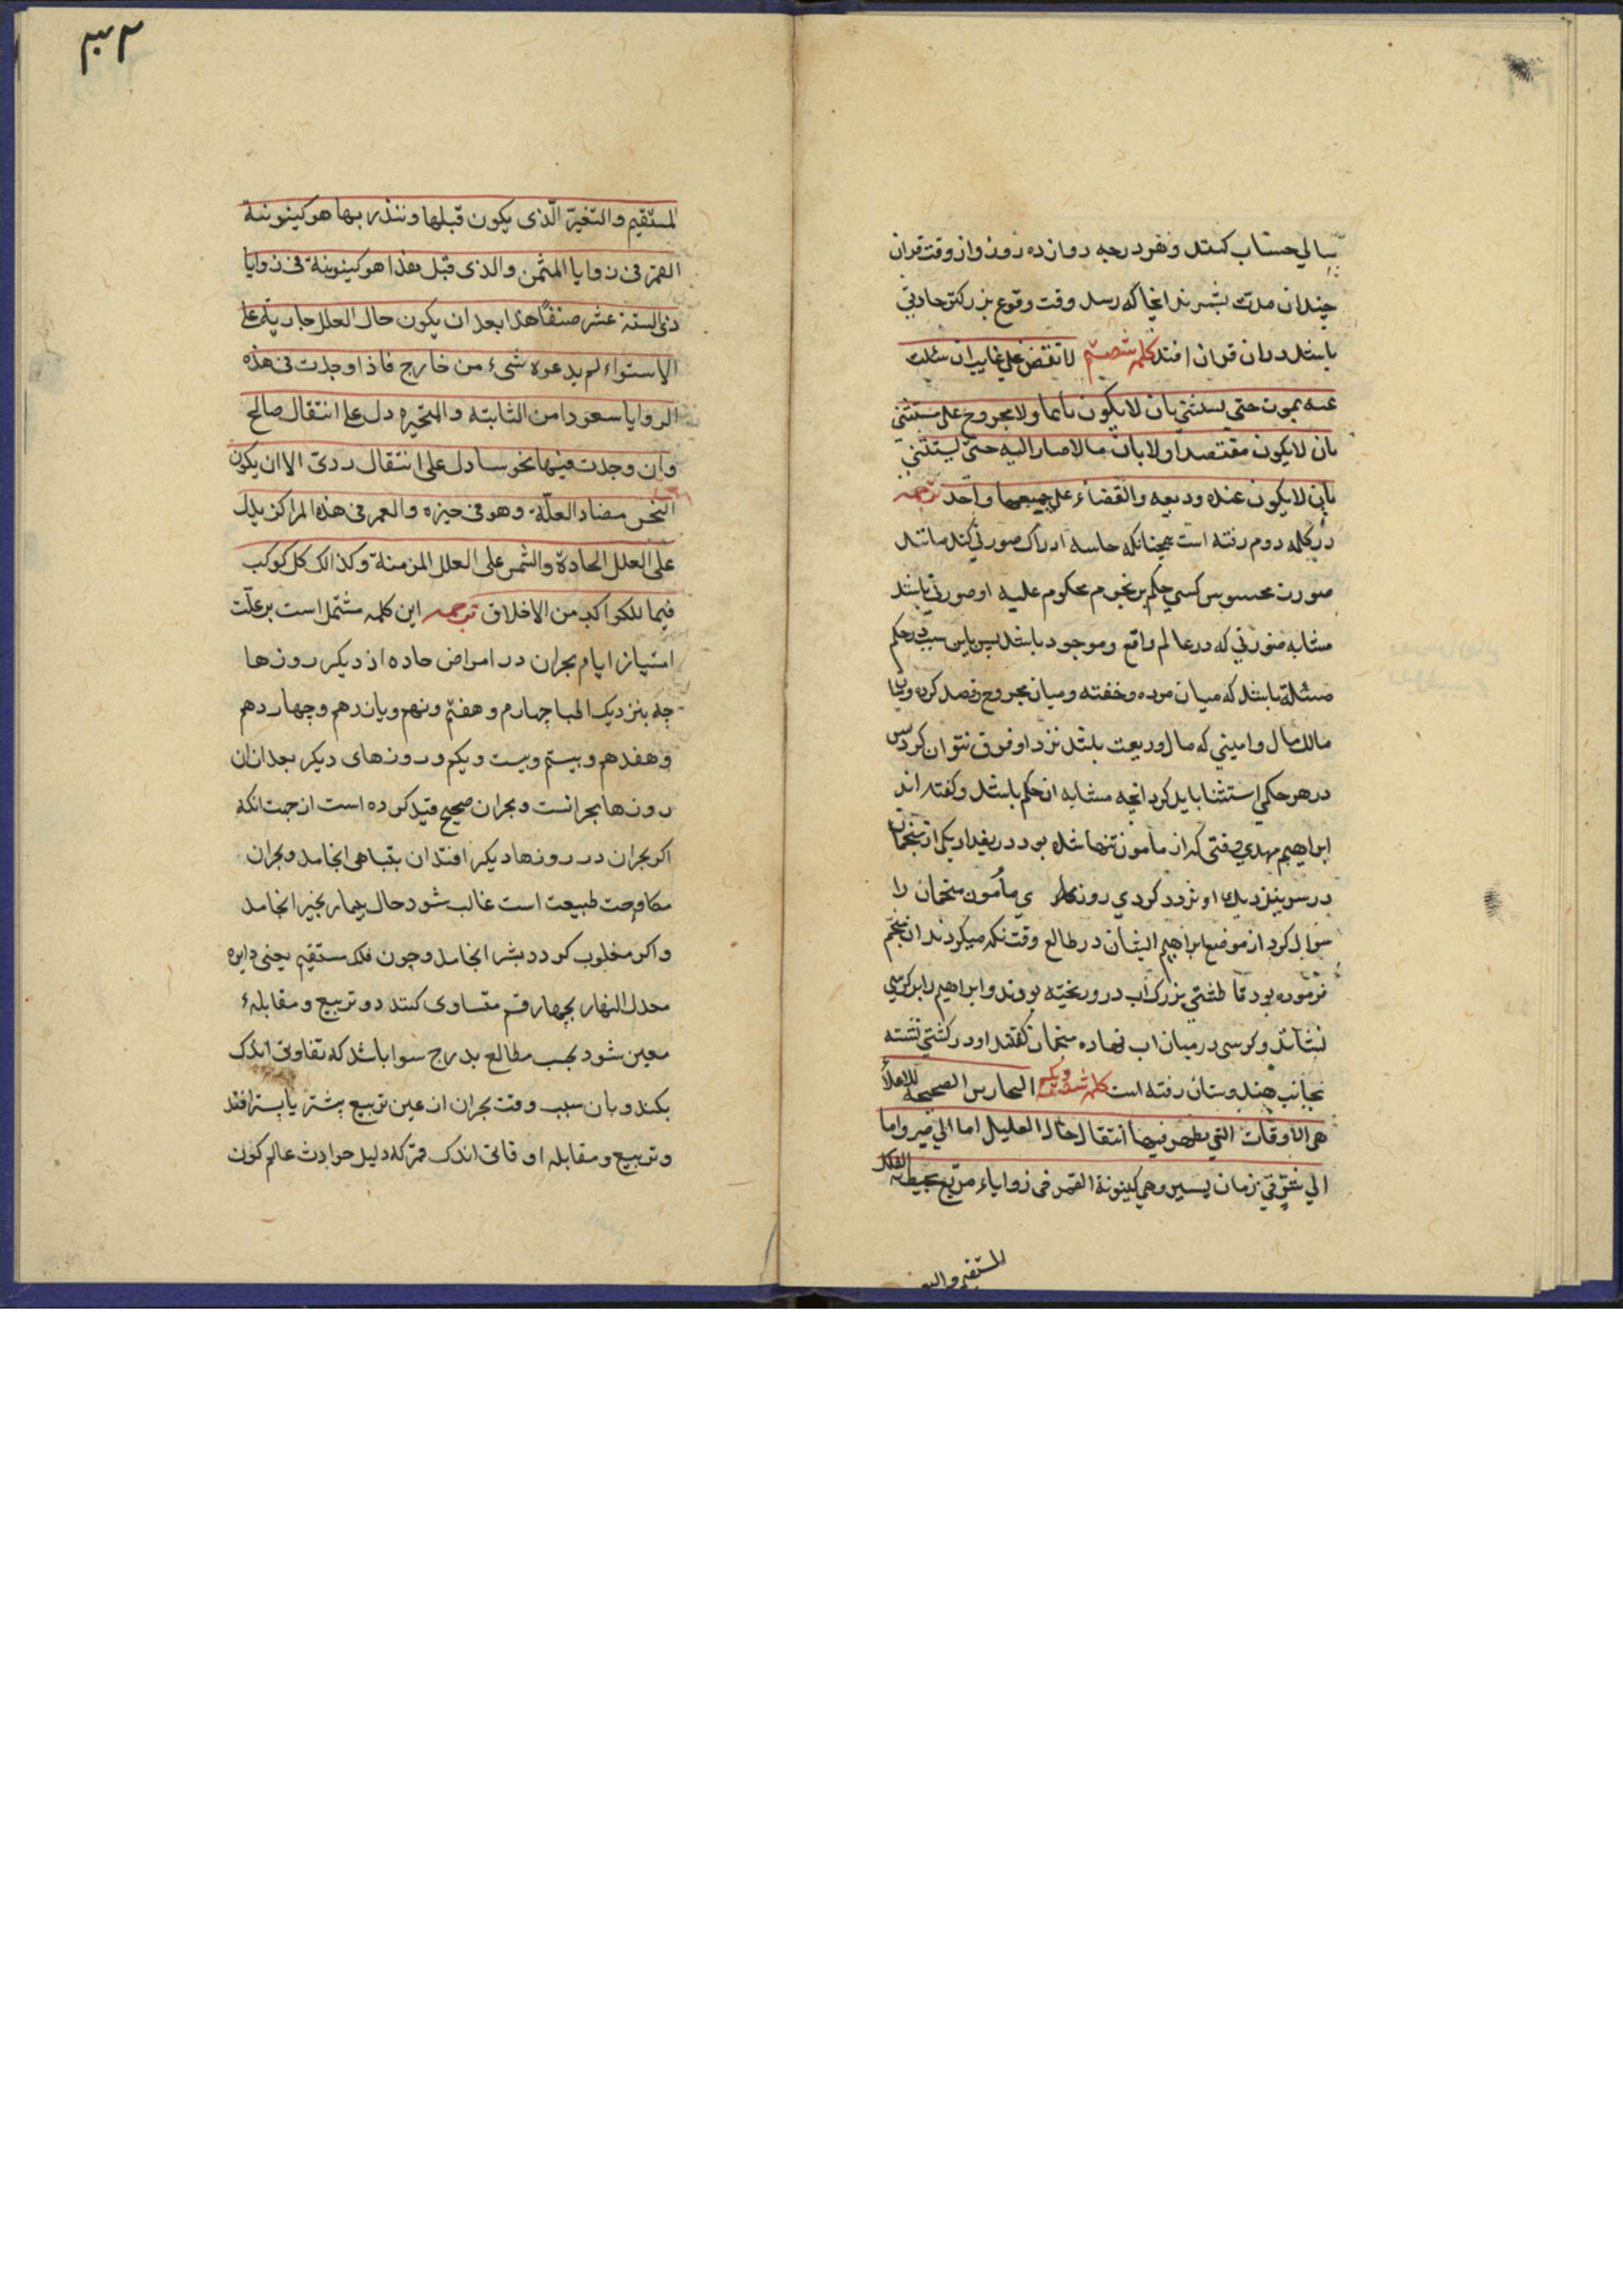 سالی حساب کنند و هر درجه دوازده روز و از وقت قران
چندان مدت بشمرند انجا که رسد وقت وقوع بزرکتر حادثی
باشد در ان قران افتد کلمه شصتم لا تقض علی غایب ان سئلت
عنه بموت حتی یستثنی بان لا یکون نایما ولا مجروح علی مستثنی
بان لا یکون مفتصدا ولا بان مالا صار الیه حتی یستثنی
بان لا یکون عنده ودیعه والقضاء علی جمیعها واحد ترجمه
در کلمه دوم رفته است همچنانکه حاسه ادراک صورتی کند مانند
صورت محسوس کسی حکم بر نجوم محکوم علیه او صورتی باشد
مشابه صورتی که در عالم واقع و موجود باشد پس باین سبب در حکم
مسئله باشد که میان مرده و خفته و میان مجروح و فصد کرده و میان
مالک مال و امینی که مال ودیعت باشد نزد او فرق نتوان کرد پس
در هر حکمی استثنا باید کرد انچه مشابه ان حکم باشد و کفته اند
ابراهیم مهدی وقتی که از مامون تنها شده بود در بغداد یکی از منجمان
در سر بنزدیک او تردد کردی روزی مأمون منجمان را
سوال کرد از موضع ابراهیم ایشان در طالع وقت نکه میکردند ان منجم
فرموده بود تا طشتی بزرک اب در و ریخته بودند و ابراهیم را بر کرسی
نشانده و کرسی در میان اب نهاده منجمان کفتند او در کشتی نشسته
بجانب هندوستان رفته است کلمه شصت و یکم البحارین الصحیحه للاعلا
هی الاوقات التی یظهر فیها انتقال حال العلیل اما الی خیر واما
الی شر فی زمان یسیر وهی کینونة القمر فی زوایاء مربع یحیط به الفلک
المستقیم والتغیر
۳۲
المستقیم والتغیر الّذی یکون قبلها وننذر بها هو کینونة
القمر فی زوایا المثمن والذی قبل هذا هو کینونة فی زوایا
ذی الستة عشر صنفاً هذا بعد ان یکون حال العلل جاریة علی
الاستواء لم یدعره شیء من خارج فاذا وجدت فی هذه
الزوایا سعودا من الثابته والمتحیره دل علی انتقال صالح
وان وجدت فیها نحوسا دل علی انتقال ردیّ الا ان یکون
النحس مضاد العلّة وهو فی حیزه والقمر فی هذه المراکز یدل
علی العلل الحادة والشمس علی العلل المزمنة وکذالک کل کوکب
فیما للکواکب من الاخلاق ترجمه این کلمه مشتمل است بر علّت
امتیاز ایام بحران در امراض حاده از دیکر روزها
چه بنزدیک اطبا چهارم و هفتم و نهم و یازدهم و چهاردهم
و هفدهم و بیستم و بیست و یکم و روزهای دیکر بعد از ان
روزها بحرانست و بحران صحیح قید کرده است از جهت انکه
اکر بحران در روزها دیکر افتد ان بتباهی انجامد و بحران
مکاوحت طبیعت است غالب شود حال بیمار بخیر انجامد
و اکر مغلوب کردد بشر انجامد و چون فلک مستقیم یعنی دایره
معدل النهار بچهار قسم متساوی کنند دو تربیع و مقابلهء
معین شود بحسب مطالع بدرج سوا باشد که تفاوتی اندک
بکند و بان سبب وقت بحران از عین تربیع پیشتر یا پستر افتد
و تربیع و مقابله اوقاتی اندک قمر که دلیل حوادث عالم کون